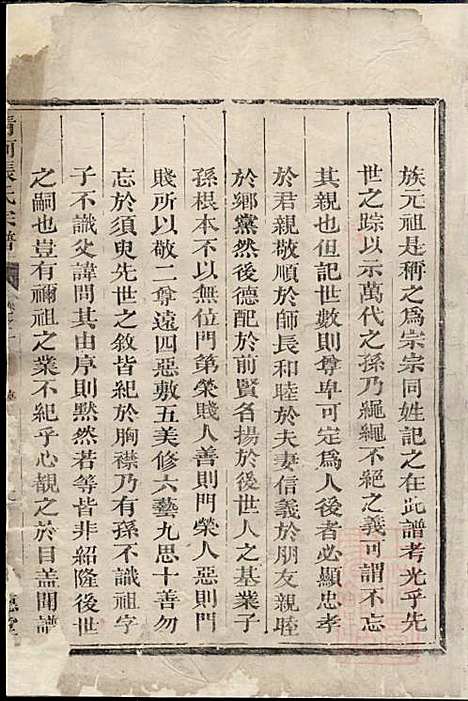 族元祖是稱之為宗宗同姓記之在此譜者光乎先
世之踪以示萬代之孫乃繩繩不絕之義可謂不忘
其親也但記世數則尊卑可定為人後者必顯忠孝
於君親敬順於師長和睦於夫妻信義於朋友親睦
於鄉黨然後德配於前賢名揚於後世人之基業子
孫根本不以無位門第榮賤人善則門榮人惡則門
賤所以敬二尊遠四惡敷五美修六藝九思十善勿
忘於須臾先世之敘皆紀於胸襟乃有孫不識祖字
子不識父諱問其由序則默然若等皆非紹隆後世
之嗣也豈有禰祖之業不紀乎心覩之於目盖開譜
清河張氏宗譜